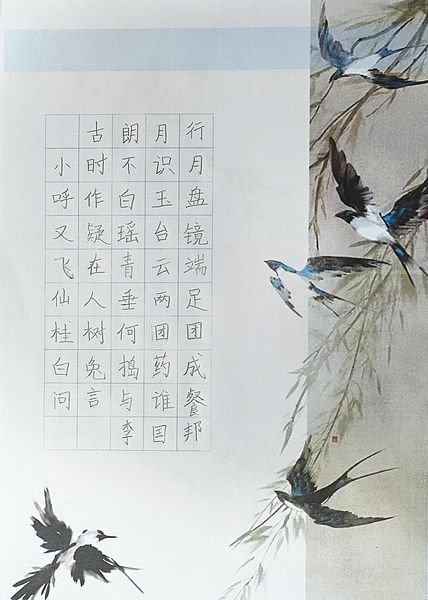 古朗月行
小时不识月
呼作白玉盘
又疑瑶台镜
飞在青云端
仙人垂两足
桂树何团团
白兔捣药成
问言与谁餐
李国邦